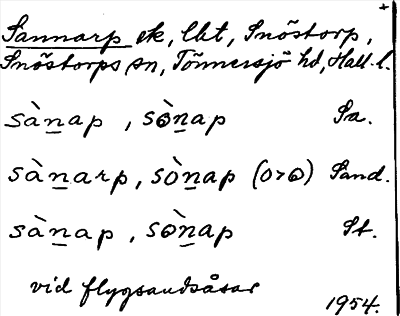 Sannarp ek, lbt, Snöstorp, +
Snöstorps sn, Tönnersjö hd, Hall.l.
sànap , sɵ̀nap Sa.
sànarp, sònap (o>ɵ) Sand.
sànap , sɵ̀nap St.
vid flygsandsåsar
1954.